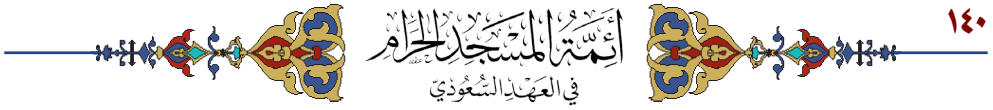 ١٤٠
أَئِمَّةُ المَسْجِدِ الحَرَامِ
فِي العَهْدِ السُّعُودِيّ